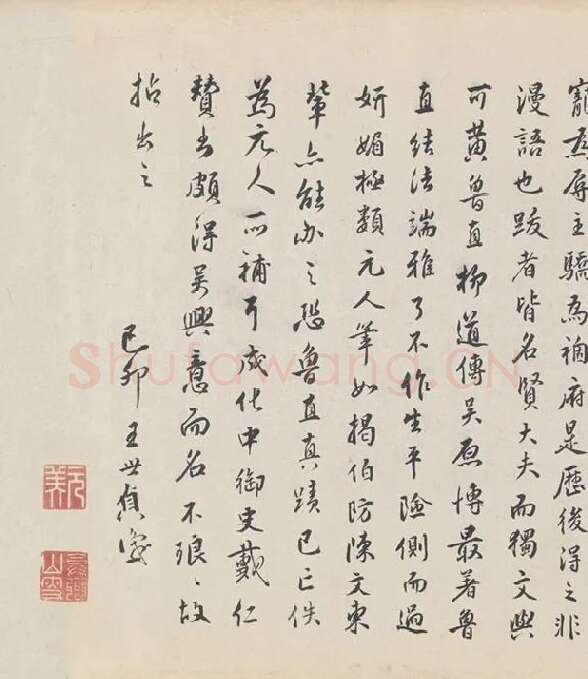 寵為辱主驕為禍府是歷後得之非
漫語也跋者皆名賢大夫而獨文與
可黃魯直柳道傳吳原博最著魯
直結法端雅了不作生平險側而過
妍媚極類元人筆如揭伯防陳文東
輩亦能办之恐魯直真蹟已亡佚
為元人所補耳成化中御史戴仁
贊書頗得吳興意而名不琅〻故
拈出之
己卯王世貞識
元美
Shufawang.CN